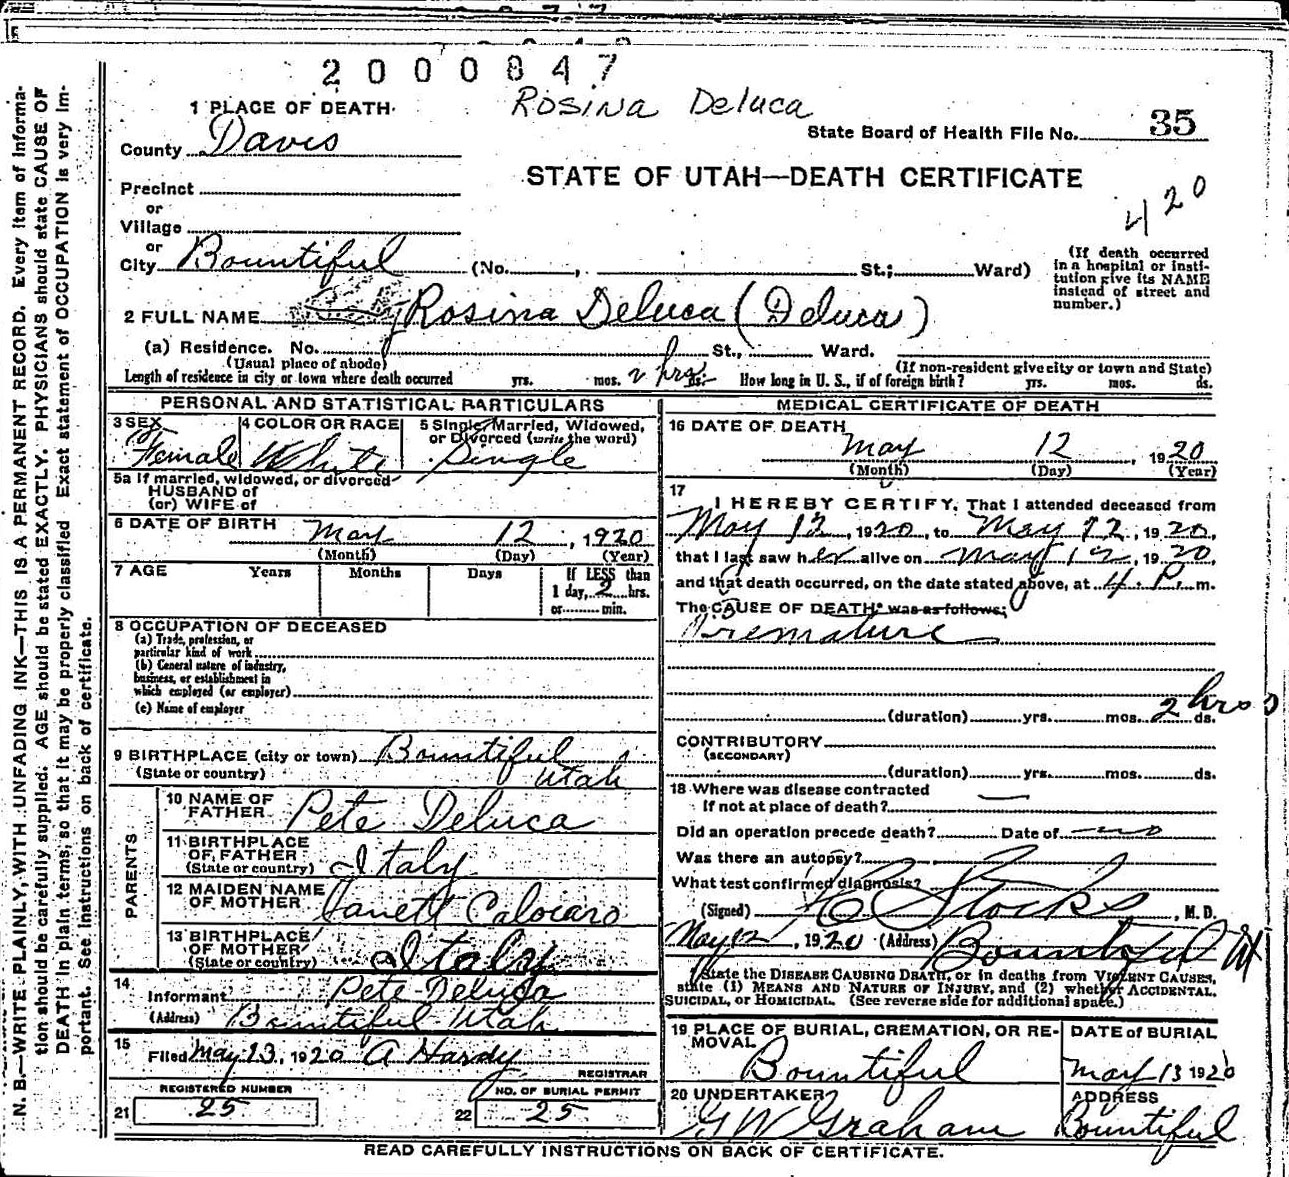 2000847
Rosina Deluca
1 PLACE OF DEATH
County Davis
State Board of Health File No. 35
STATE OF UTAH—DEATH CERTIFICATE
420
Precinct
or
Village
or
City Bountiful (No. , St.; Ward)
(If death occurred in a hospital or institution give its NAME instead of street and number.)
2 FULL NAME Rosina Deluca (Deluca)
(a) Residence. No. St., Ward.
(Usual place of abode) (If non-resident give city or town and State)
Length of residence in city or town where death occurred yrs. mos. 2 hrs. ds. How long in U. S., if of foreign birth? yrs. mos. ds.
PERSONAL AND STATISTICAL PARTICULARS
3 SEX Female
4 COLOR OR RACE White
5 Single, Married, Widowed, or Divorced (write the word) Single
5a If married, widowed, or divorced
HUSBAND of
(or) WIFE of
6 DATE OF BIRTH May 12, 1920
(Month) (Day) (Year)
7 AGE Years Months Days If LESS than
1 day, 2 hrs.
or min.
8 OCCUPATION OF DECEASED
(a) Trade, profession, or
particular kind of work
(b) General nature of industry,
business, or establishment in
which employed (or employer)
(c) Name of employer
9 BIRTHPLACE (city or town) Bountiful
(State or country) Utah
PARENTS
10 NAME OF FATHER Pete Deluca
11 BIRTHPLACE OF FATHER (State or country) Italy
12 MAIDEN NAME OF MOTHER Calocaro
13 BIRTHPLACE OF MOTHER (State or country) Italy
14 Informant Pete Deluca
(Address) Bountiful Utah
15 Filed May 13, 1920 A Hardy
REGISTRAR
REGISTERED NUMBER NO. OF BURIAL PERMIT
21 25 22 25
MEDICAL CERTIFICATE OF DEATH
16 DATE OF DEATH
May 12, 1920
(Month) (Day) (Year)
17 I HEREBY CERTIFY, That I attended deceased from
May 12, 1920, to May 12, 1920,
that I last saw her alive on May 12, 1920,
and that death occurred, on the date stated above, at 4 P. m.
The CAUSE OF DEATH* was as follows:
Premature
(duration) yrs. mos. 2 hrs ds.
CONTRIBUTORY
(SECONDARY)
(duration) yrs. mos. ds.
18 Where was disease contracted
If not at place of death?
Did an operation precede death? Date of no
Was there an autopsy?
What test confirmed diagnosis?
(Signed) Stocks, M. D.
May 12, 1920 (Address) Bountiful Ut
State the DISEASE CAUSING DEATH, or in deaths from VIOLENT CAUSES,
state (1) MEANS AND NATURE OF INJURY, and (2) whether ACCIDENTAL,
SUICIDAL, or HOMICIDAL. (See reverse side for additional space.)
19 PLACE OF BURIAL, CREMATION, OR REMOVAL
Bountiful
DATE of BURIAL
May 13 1920
20 UNDERTAKER
G W Graham
ADDRESS
Bountiful
READ CAREFULLY INSTRUCTIONS ON BACK OF CERTIFICATE.
N. B.—WRITE PLAINLY, WITH UNFADING INK—THIS IS A PERMANENT RECORD. Every item of Informa-
tion should be carefully supplied. AGE should be stated EXACTLY. PHYSICIANS should state CAUSE OF
DEATH in plain terms, so that it may be properly classified. Exact statement of OCCUPATION is very im-
portant. See instructions on back of certificate.